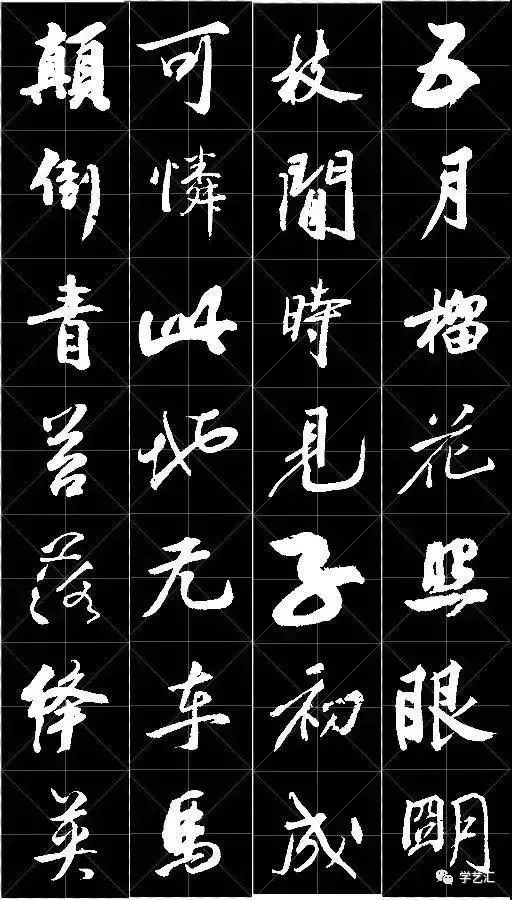 五月榴花照眼朙
枝閒時見子初成
可憐此地无车馬
顛倒青苔落绛英
学艺汇